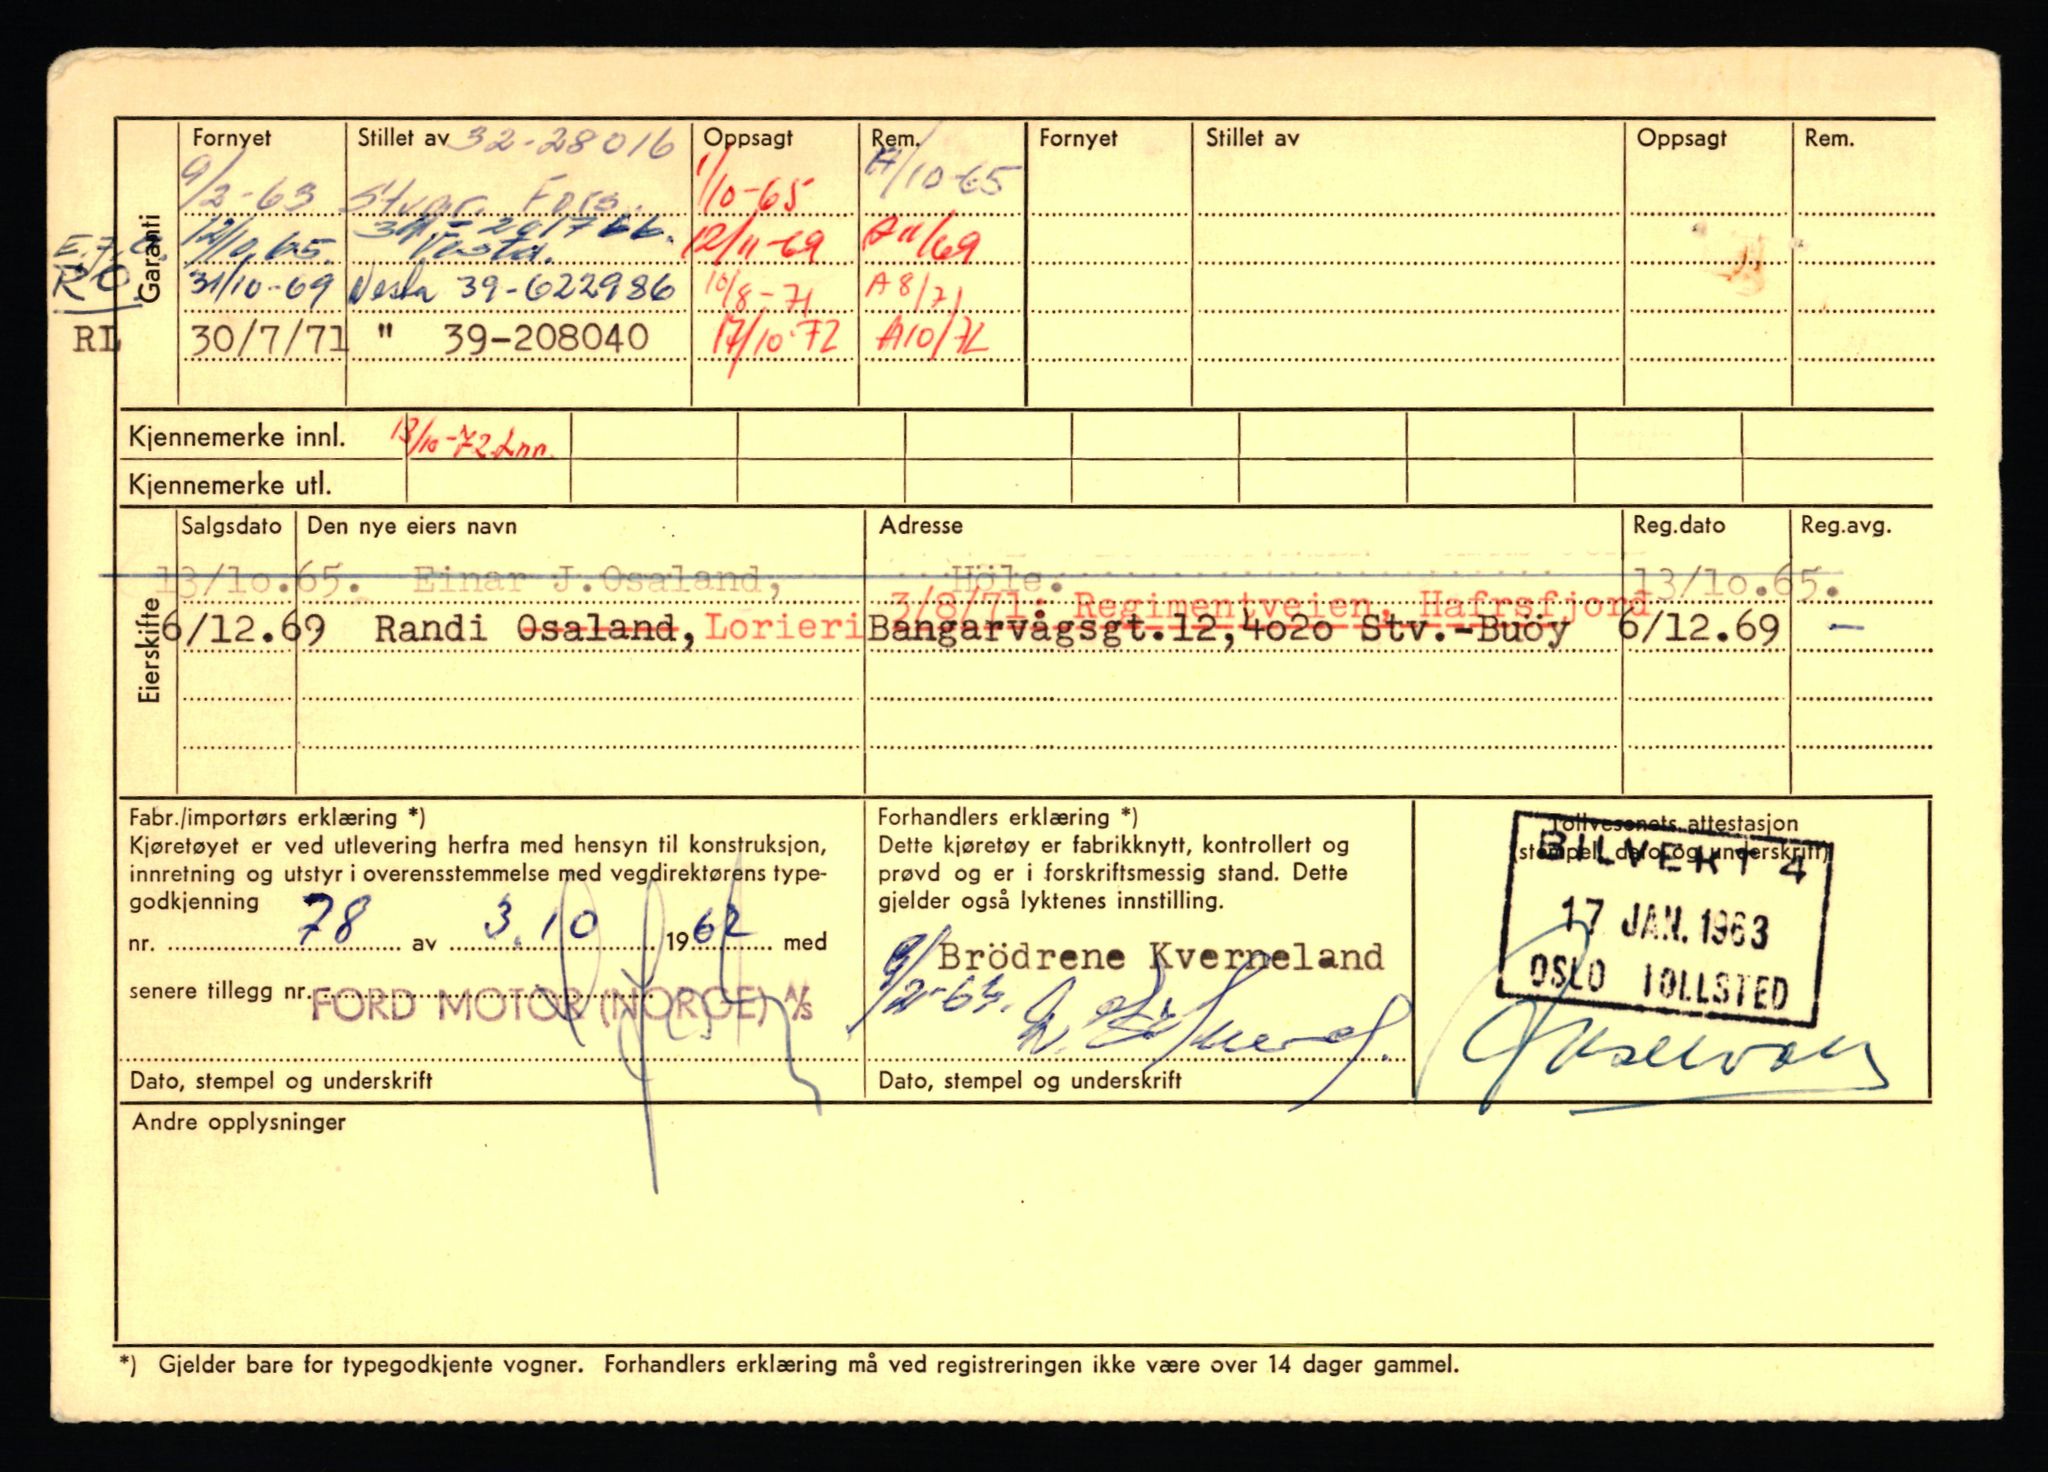 Fornyet Stillet av 32-28016 Oppsagt Rem. Fornyet Stillet av Oppsagt Rem.
Garanti
9/2-63 Stvgr. Fors. 1/10-65 A/10-65
12/10.65. Vesta. 12/11-69 A11/69
RO. 31/10-69 Vesta 39-622986 10/8-71 A8/71
RL 30/7/71 " 39-208040 17/10-72 A10/72
Kjennemerke innl. 13/10-72 Inn.
Kjennemerke utl.
Eierskifte
Salgsdato Den nye eiers navn Adresse Reg.dato Reg.avg.
13/10.65. Einar J.Osaland, Höle. 13/10.65.
3/8/71: Regimentveien, Hafrsfjord
6/12.69 Randi Osaland, Lorieri Bangarvågsgt.12,4020 Stv.-Buöy 6/12.69 —
Fabr./importørs erklæring *)
Kjøretøyet er ved utlevering herfra med hensyn til konstruksjon,
innretning og utstyr i overensstemmelse med vegdirektørens type-
godkjenning
nr. 78 av 3.10 1962 med
senere tillegg nr.
FORD MOTOR (NORGE) A/S
Dato, stempel og underskrift
Forhandlers erklæring *)
Dette kjøretøy er fabrikknytt, kontrollert og
prøvd og er i forskriftsmessig stand. Dette
gjelder også lyktenes innstilling.
9/2-63. Brödrene Kverneland
Dato, stempel og underskrift
Tollvesenets attestasjon
(stempel, dato og underskrift)
BILVERT 4
17 JAN. 1963
OSLO TOLLSTED
Andre opplysninger
*) Gjelder bare for typegodkjente vogner. Forhandlers erklæring må ved registreringen ikke være over 14 dager gammel.